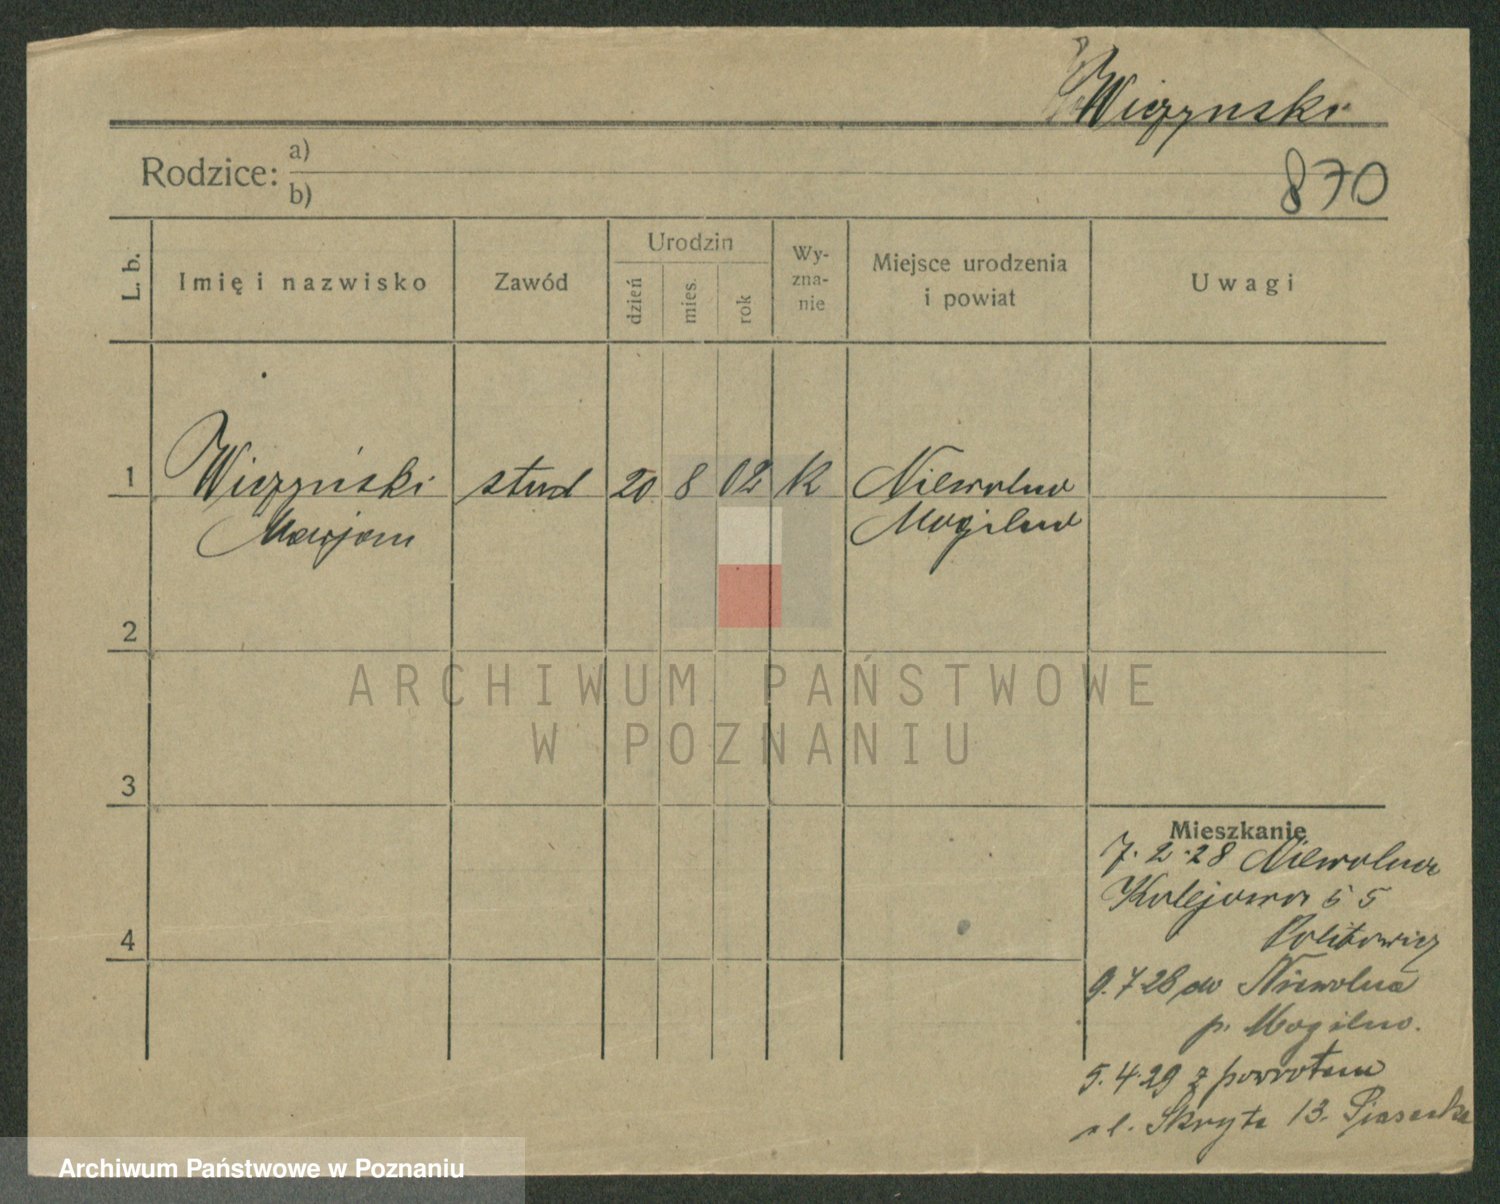 Wieczynski
Rodzice: a)
b)
870
L. b.
Imię i nazwisko
Zawód
Urodzin
dzień
mies.
rok
Wy-
zna-
nie
Miejsce urodzenia
i powiat
Uwagi
1
Wieczyński stud 20 8 02 K Niewolno
Marjan Mogilno
2
3
4
Mieszkanie
7.2.28 Niewolna
Kolejowa 55
9.7.28 do Niewolna
p. Mogilno.
5.4.29 z powrotem
ul. Skryta 13. Piasecka
ARCHIWUM PAŃSTWOWE
W POZNANIU
Archiwum Państwowe w Poznaniu